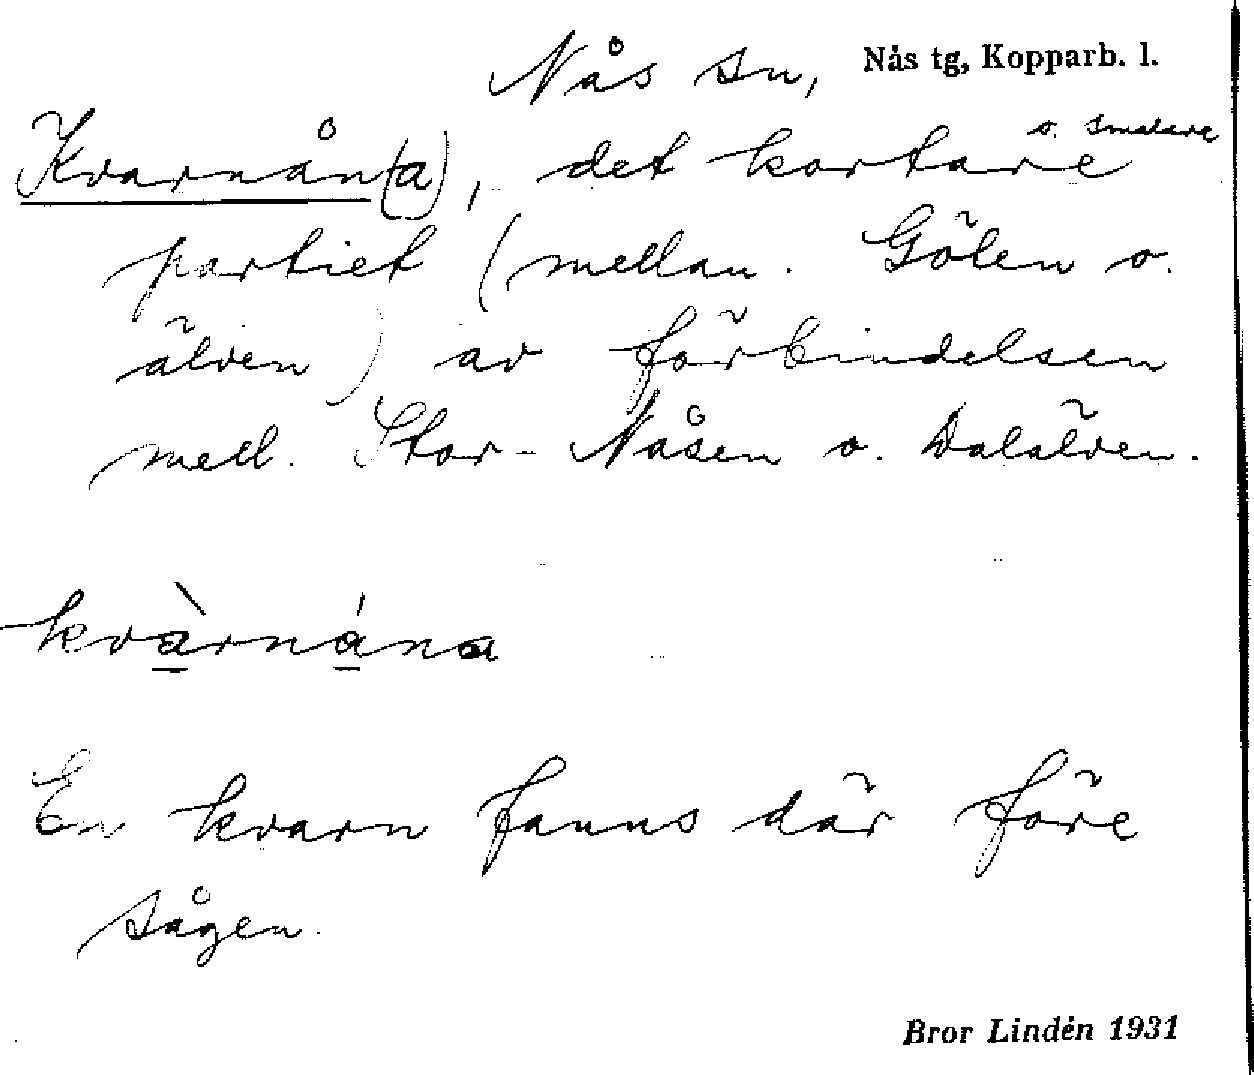 Nås sn, Nås tg, Kopparb. l.
Kvarnån(a), det kortare o. smalare
partiet (mellan. Gölen o.
älven) av förbindelsen
mell. Stor-Nåsen o. Dalälven.
kvàrnána
En kvarn fanns där före
sågen.
Bror Lindén 1931